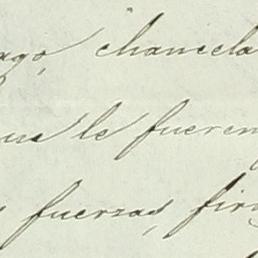 ago, chancela
que le fueren
fuerzas, fir